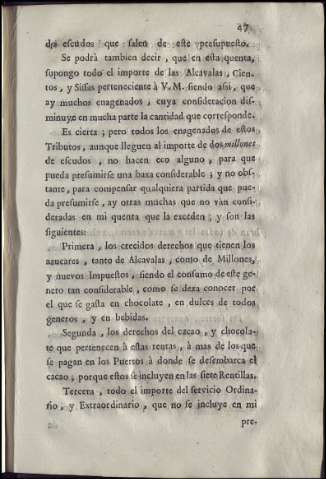 47
dos escudos que salen de este presupuesto.
Se podrà tambien decir, que en esta quenta,
supongo todo el importe de las Alcavalas, Cien-
tos, y Sisas perteneciente à V. M. siendo assi, que
ay muchos enagenados, cuya consideracion dis-
minuye en mucha parte la cantidad que corresponde.
Es cierta; pero todos los enagenados de estos
Tributos, aunque lleguen al importe de dos millones
de escudos, no hacen eco alguno, para que
pueda presumirse una baxa considerable; y no obs-
tante, para compensar qualquiera partida que pue-
da presumirse, ay otras muchas que no ván consi-
deradas en mi quenta que la exceden; y son las
siguientes:
Primera, los crecidos derechos que tienen los
azucares, tanto de Alcavalas, como de Millones,
y nuevos Impuestos, siendo el consumo de este ge-
nero tan considerable, como se dexa conocer por
el que se gasta en chocolate, en dulces de todos
generos, y en bebidas.
Segunda, los derechos del cacao, y chocola-
te que pertenecen à estas rentas, à mas de los que
se pagan en los Puertos à donde se desembarca el
cacao; porque estos se incluyen en las siete Rentillas.
Tercera, todo el importe del servicio Ordina-
rio, y Extraordinario, que no se incluye en mi
pre-